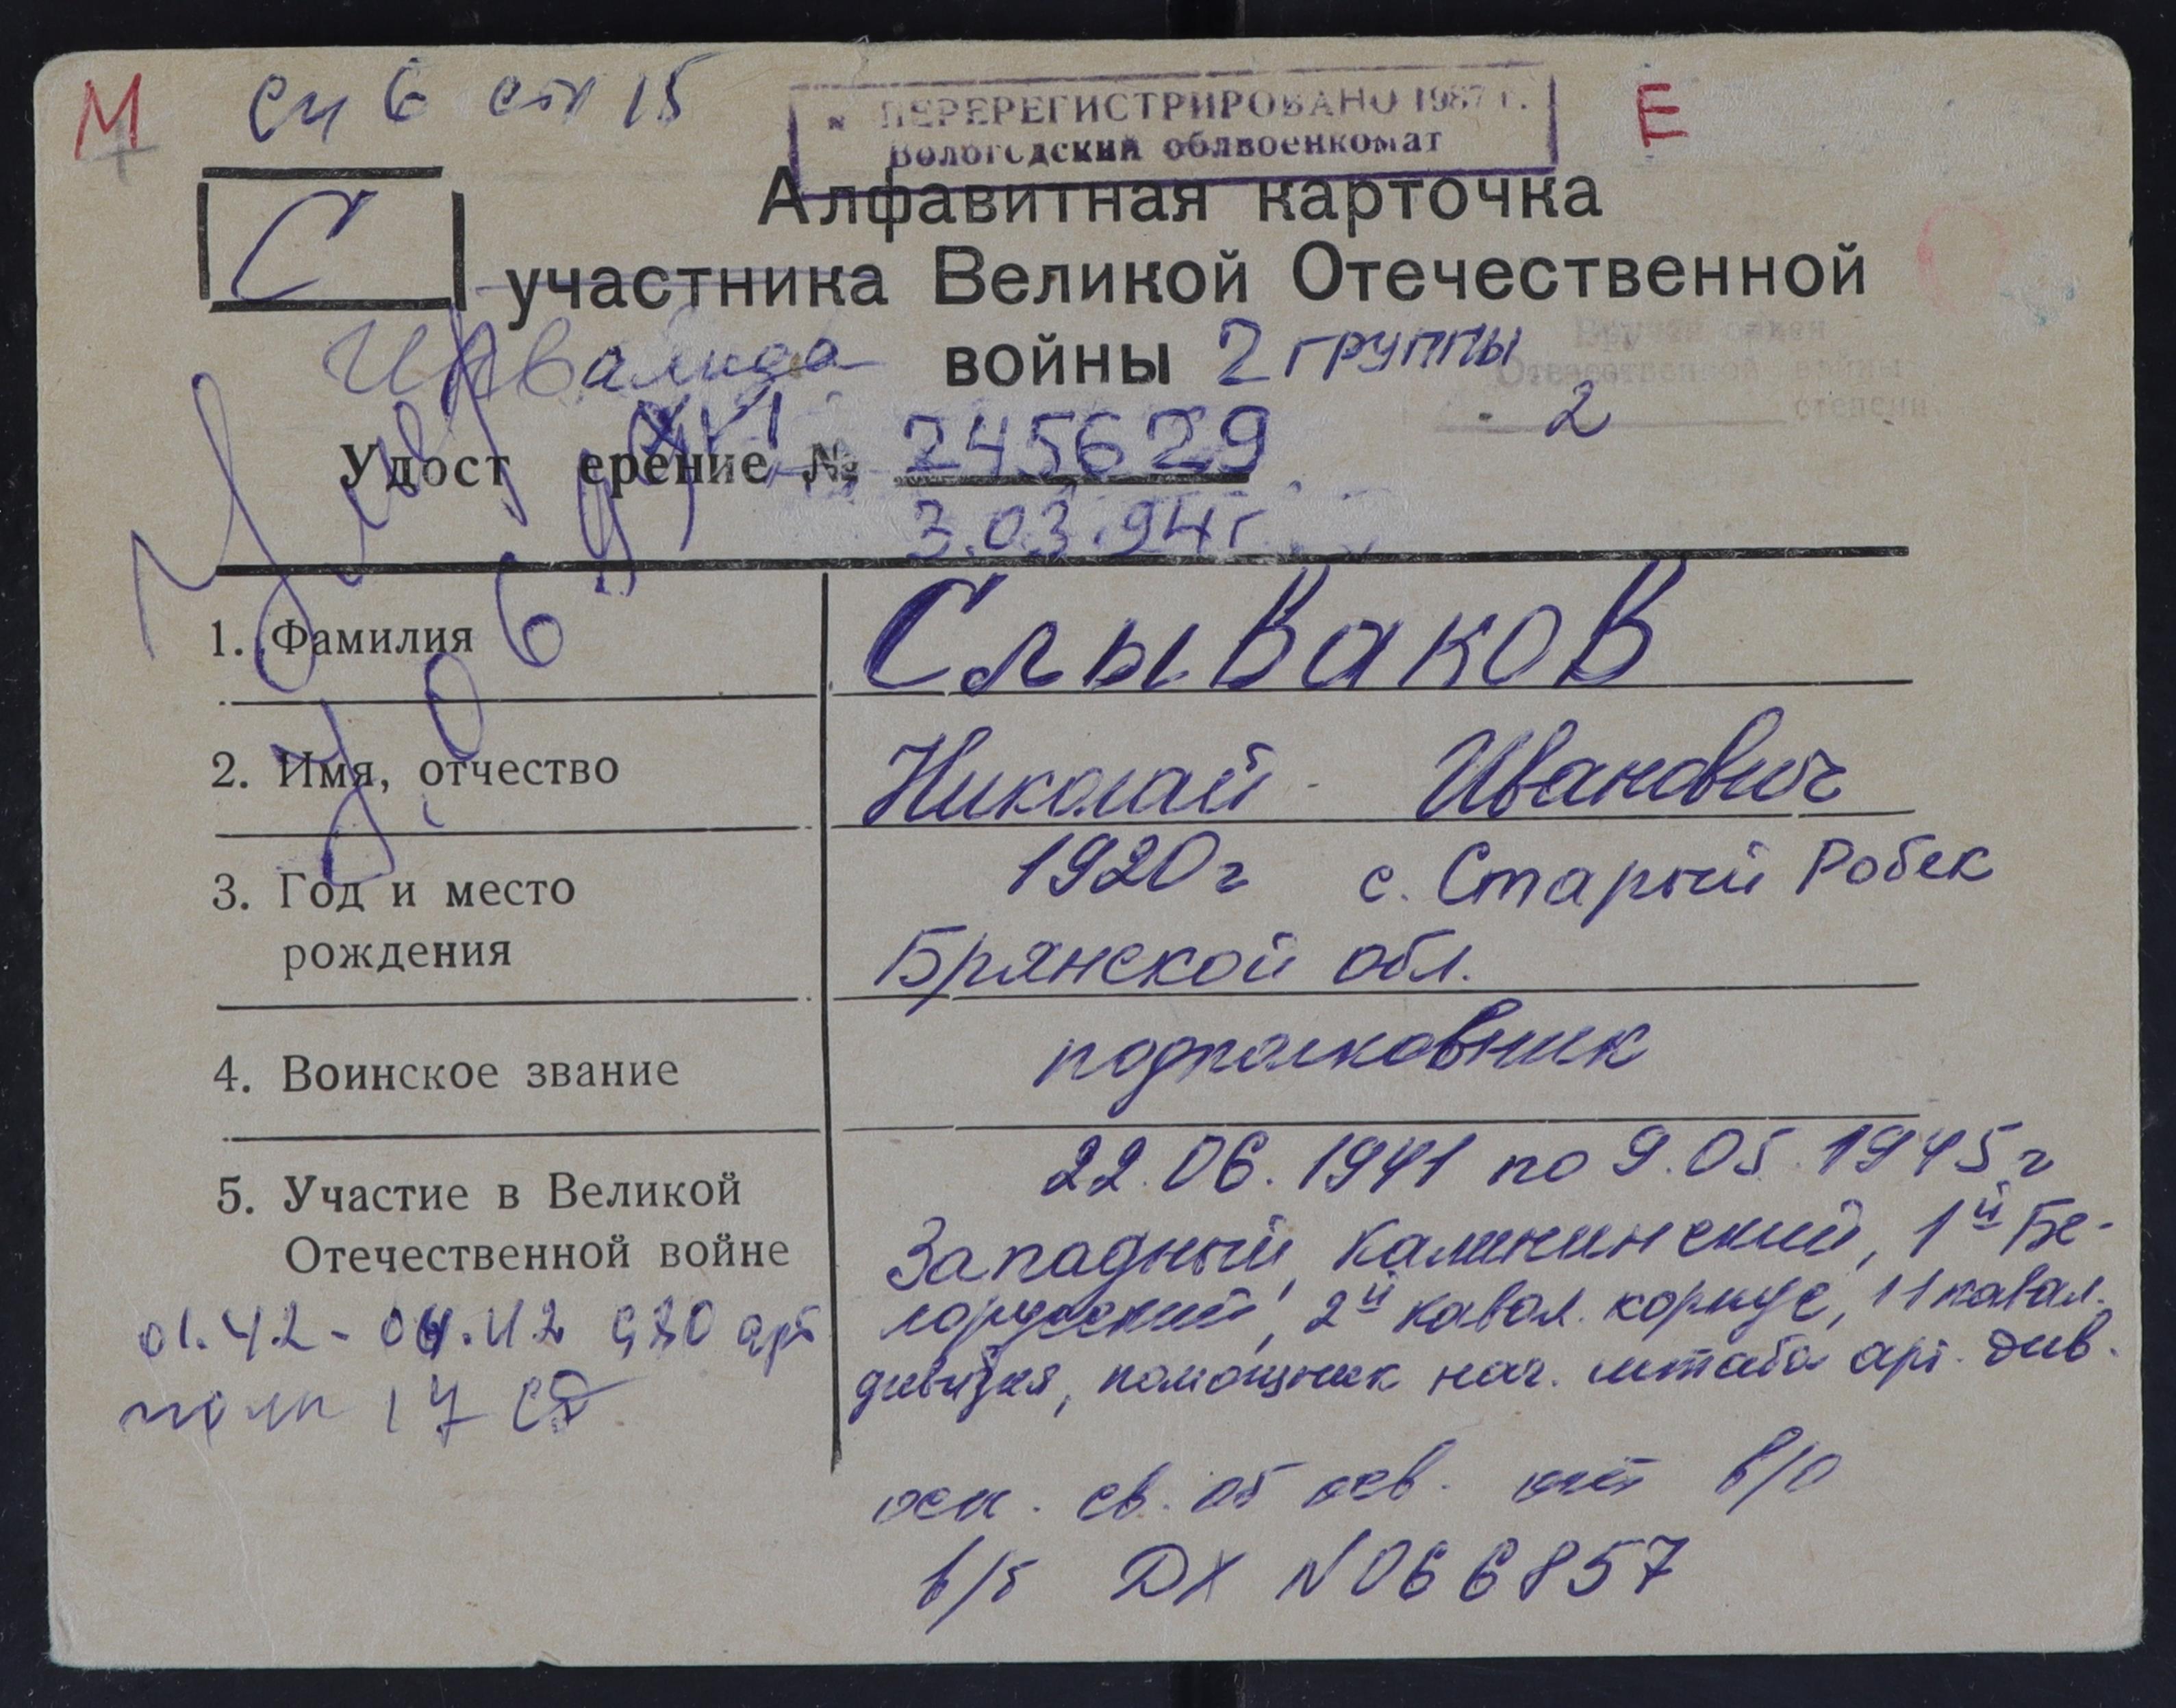 М сп 6 стр 15 Е
ПЕРЕРЕГИСТРИРОВАНО 1987 г.
Вологодский облвоенкомат
С
Алфавитная карточка
участника Великой Отечественной
инвалида войны 2 группы
Отечественной войны
2 степени
Удостерение № 245629
3.03.94г.
Умер
1. Фамилия Слываков
2. Имя, отчество Николай Иванович
3. Год и место 1920г с. Старый Робек
рождения Брянской обл.
4. Воинское звание подполковник
5. Участие в Великой 22.06.1941 по 9.05.1945г
Отечественной войне Западный, Калининский, 1й Бе-
лорусский, 2й кавал. корпус, 11 кавал.
дивизия, помощник нач. штаба арт. див.
01.42 - 04.42 980 арт
полк 17 СД
осн. св. об осв. от в/о
в/б ДХ N066857